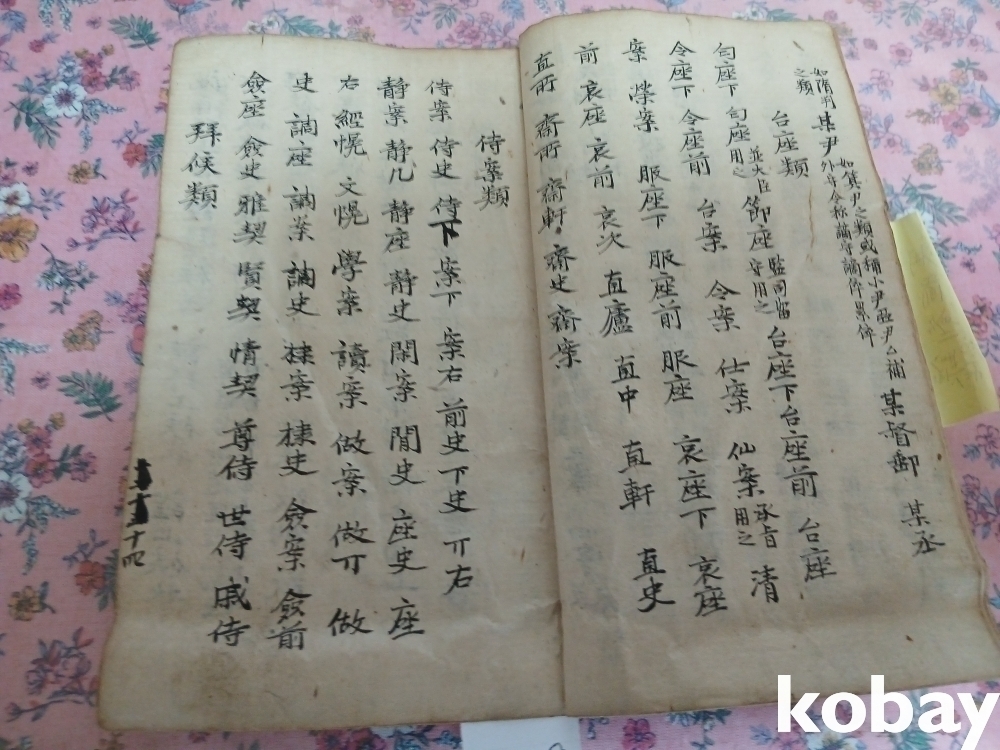 如隋刋之類 某尹 如箕尹之類或稱小尹亞尹補外守令称謫守謫倅累倅 某督郵 某丞
台座類
匀座下 匀座 並大臣用之 節座 監司留守用之 台座下 台座前 台座
令座下 令座前 台案 令案 仕案 仙案 承旨用之 清
案 榮案 服座下 服座前 服座 哀座下 哀座
前 哀座 哀前 哀次 直廬 直中 直軒 直史
直所 齋所 齋軒 齋史 齋案
侍案類
侍案 侍史 侍下 案下 案右 前史 下史 丌右
静案 静几 静座 静史 閑案 閒史 座史 座
右 經幌 文幌 學案 讀案 做案 做丌 做
史 謫座 謫案 謫史 棣案 棣史 僉案 僉前
僉座 僉史 雅契 賢契 情契 尊侍 世侍 戚侍
拜候類
十四
kobay